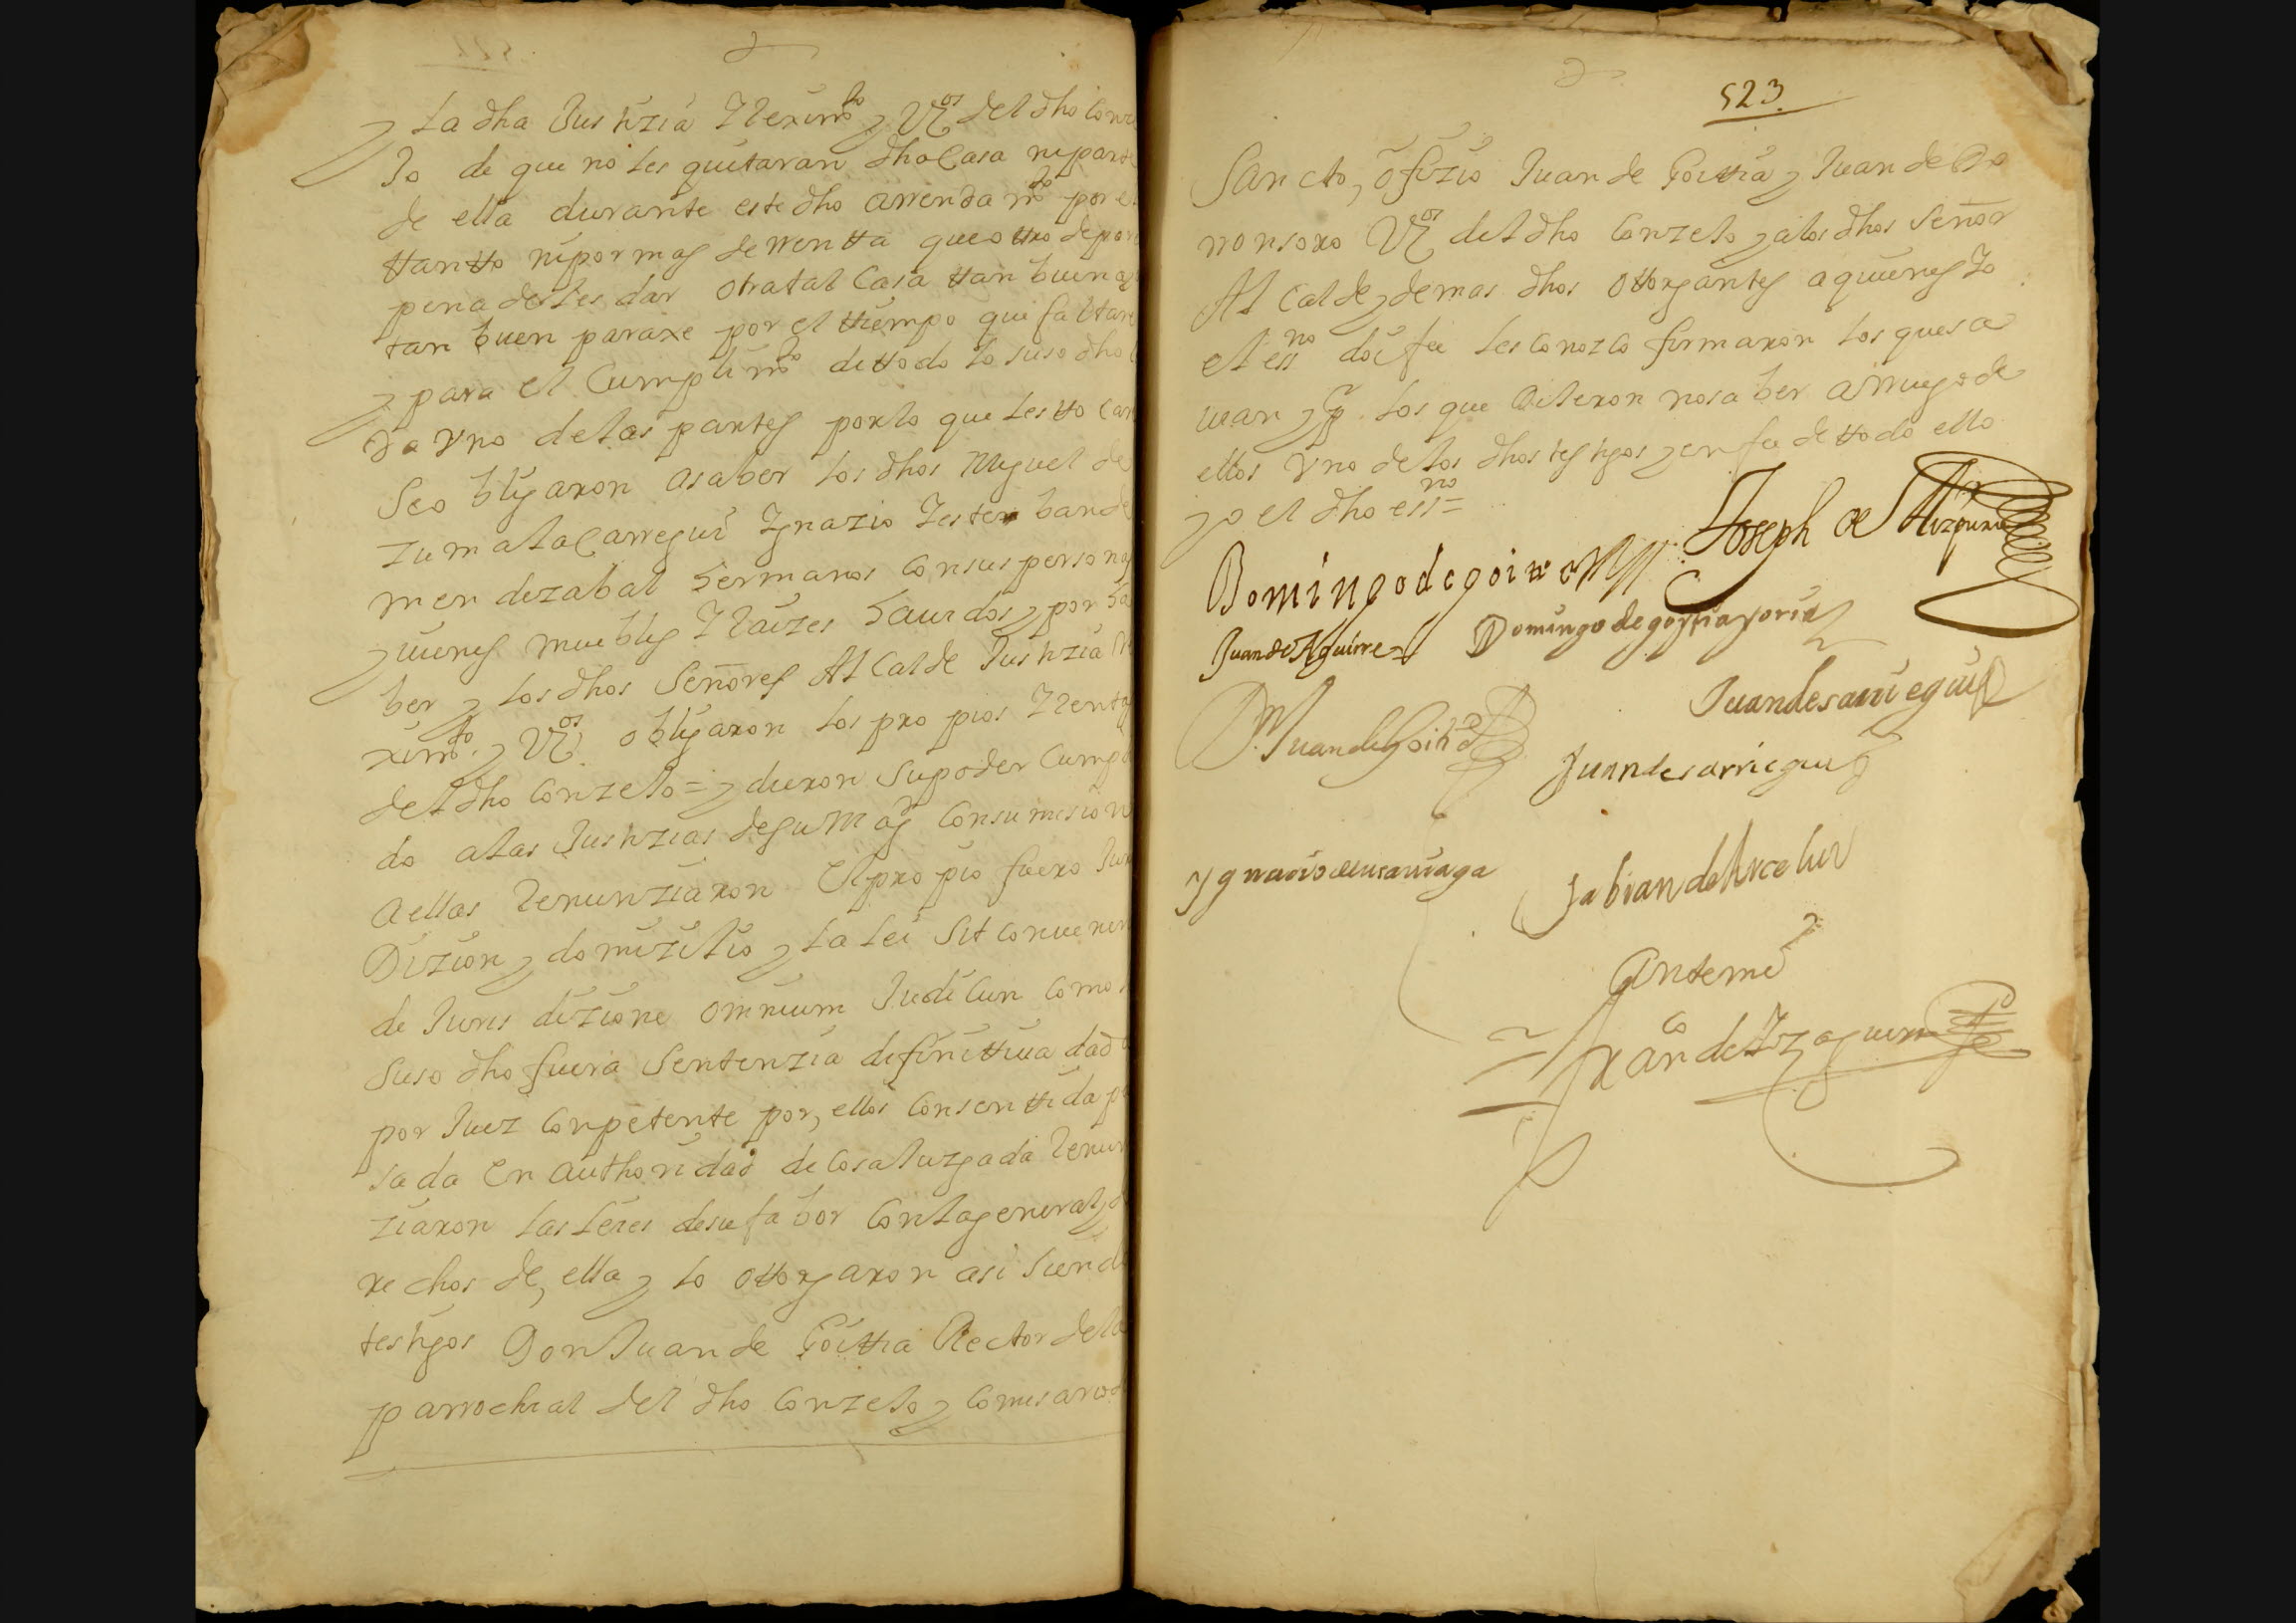 y la dha Justizia Reximto y Vos del dho conze
Jo de que no les quitaran dha Casa ni parte
de ella durante este dho arrendamto por el
ttantto ni por mas de rrentta que otro de pore
pena de les dar otra tal Casa ttan buena y
tan buen paraxe por el ttiempo que faltare
y para el Cumplimto de ttodo lo suso dho
Da Vno de las partes por lo que les tto ca
Se obligaron asaber los dhos Miguel de
Zumalacarregui Ygnazio y esteban de
mendizabal hermanos con sus personas
y uienes muebles y Raizes hauidos y por ha
ber y los dhos Señores Alcalde Justizia Re
ximto y Vos obligaron los propios y Rentas
del dho Conzelo = y dieron su poder Cumpli
do a las Justizias de su Magd con sumision
a ellas Renunziaron el propio fuero Juris
Dizion y domizilio y la lei sit conuenerit
de Juris dizione omnium Judicun como si
suso dho fuera Sentenzia difinittiua dada
por Juez conpetente por ellos consenttida pa
sada en authoridad de cosa Juzgada Renun
ziaron las leies de su fabor con la general y de
rechos de ella y lo ottorgaron asi siendo
testigos Don Juan de Goittia Rector de la
parrochial del dho Conzelo y comisario de
523
Sancto ofizio Juan de Goittia y Juan de
rronsoro Vos del dho Conzelo y a los dhos Señor
Alcalde y demas dhos ottorgantes a quienes yo
el essno doi fee les conozco firmaron los que sa
uian y por los que dixeron no saber a rruego de
ellos Vno de los dhos testigos y en fee de ttodo ello
yo el dho essno =
Joseph de Aizpuru
Domingo de goitia
Juan de Aguirre
Domingo de goittia
Juan de sarriegui
D. Juan de Goitia
Juan de sarriegui
Ygnacio de usarraga
Fabian de Arcelus
Ante mi
Franco de Yzaguirre